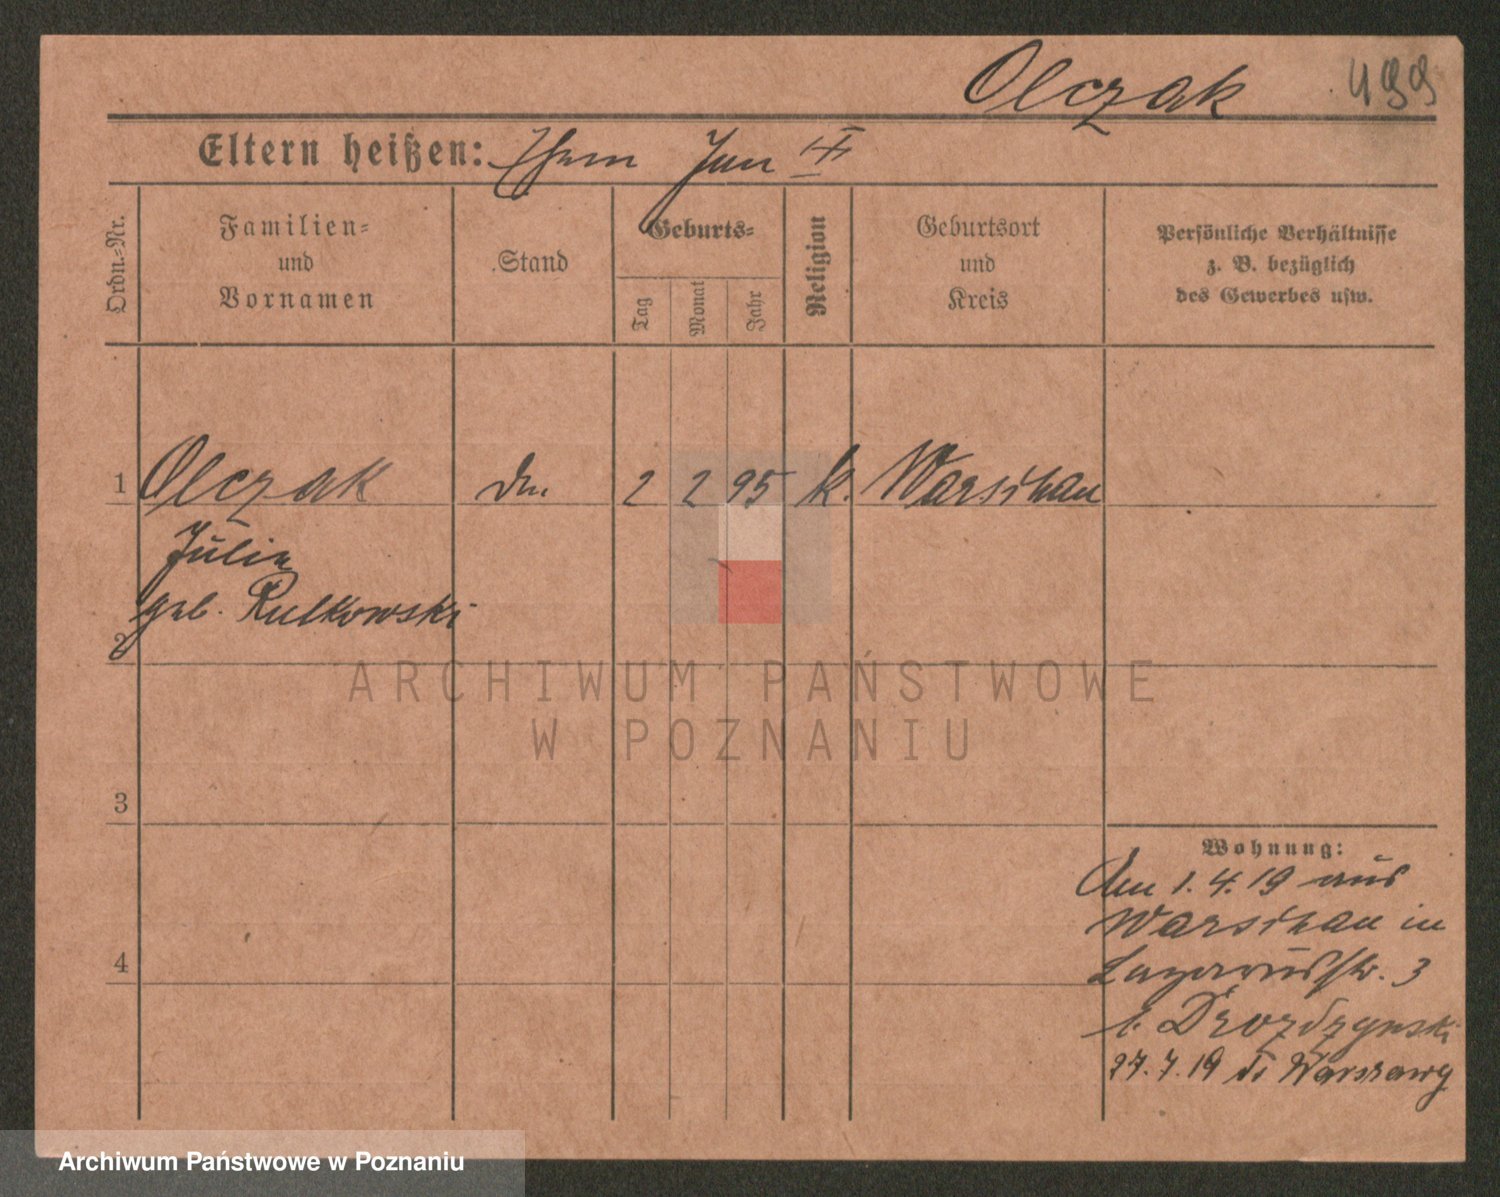 Olczak 499
Eltern heißen: Ehem Jan
Ordn.=Nr.
Familien=
und
Vornamen
Stand
Geburts=
Tag
Monat
Jahr
Religion
Geburtsort
und
Kreis
Persönliche Verhältnisse
z. B. bezüglich
des Gewerbes usw.
1 Olczak 2 2 95 k. Warschau
Julie
geb. Rulkowski
2
ARCHIWUM PAŃSTWOWE
W POZNANIU
3
Wohnung:
Am 1.4.19 aus
Warschau in
Lazarusstr. 3
b. Drozdzynski
4
27.7.19 Warszawy
Archiwum Państwowe w Poznaniu